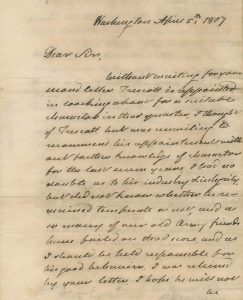 Washington April 5th 1807
Dear Sir,
Without waiting for your
second letter Truscott is appointed
in looking about for a suitable
character in that quarter, I thought
of Truscott but was unwilling to
recommend his appointment with
out further knowledge of character
for the last seven years, I had no
doubt as to his industry & integrity
but did not know whether he re-
mained temperate or not, and as
so many of our old Army friends
have failed on that score, and as
I should be held responsible for
his good behaviour, I was relieved
by your letter I hope he will not
be